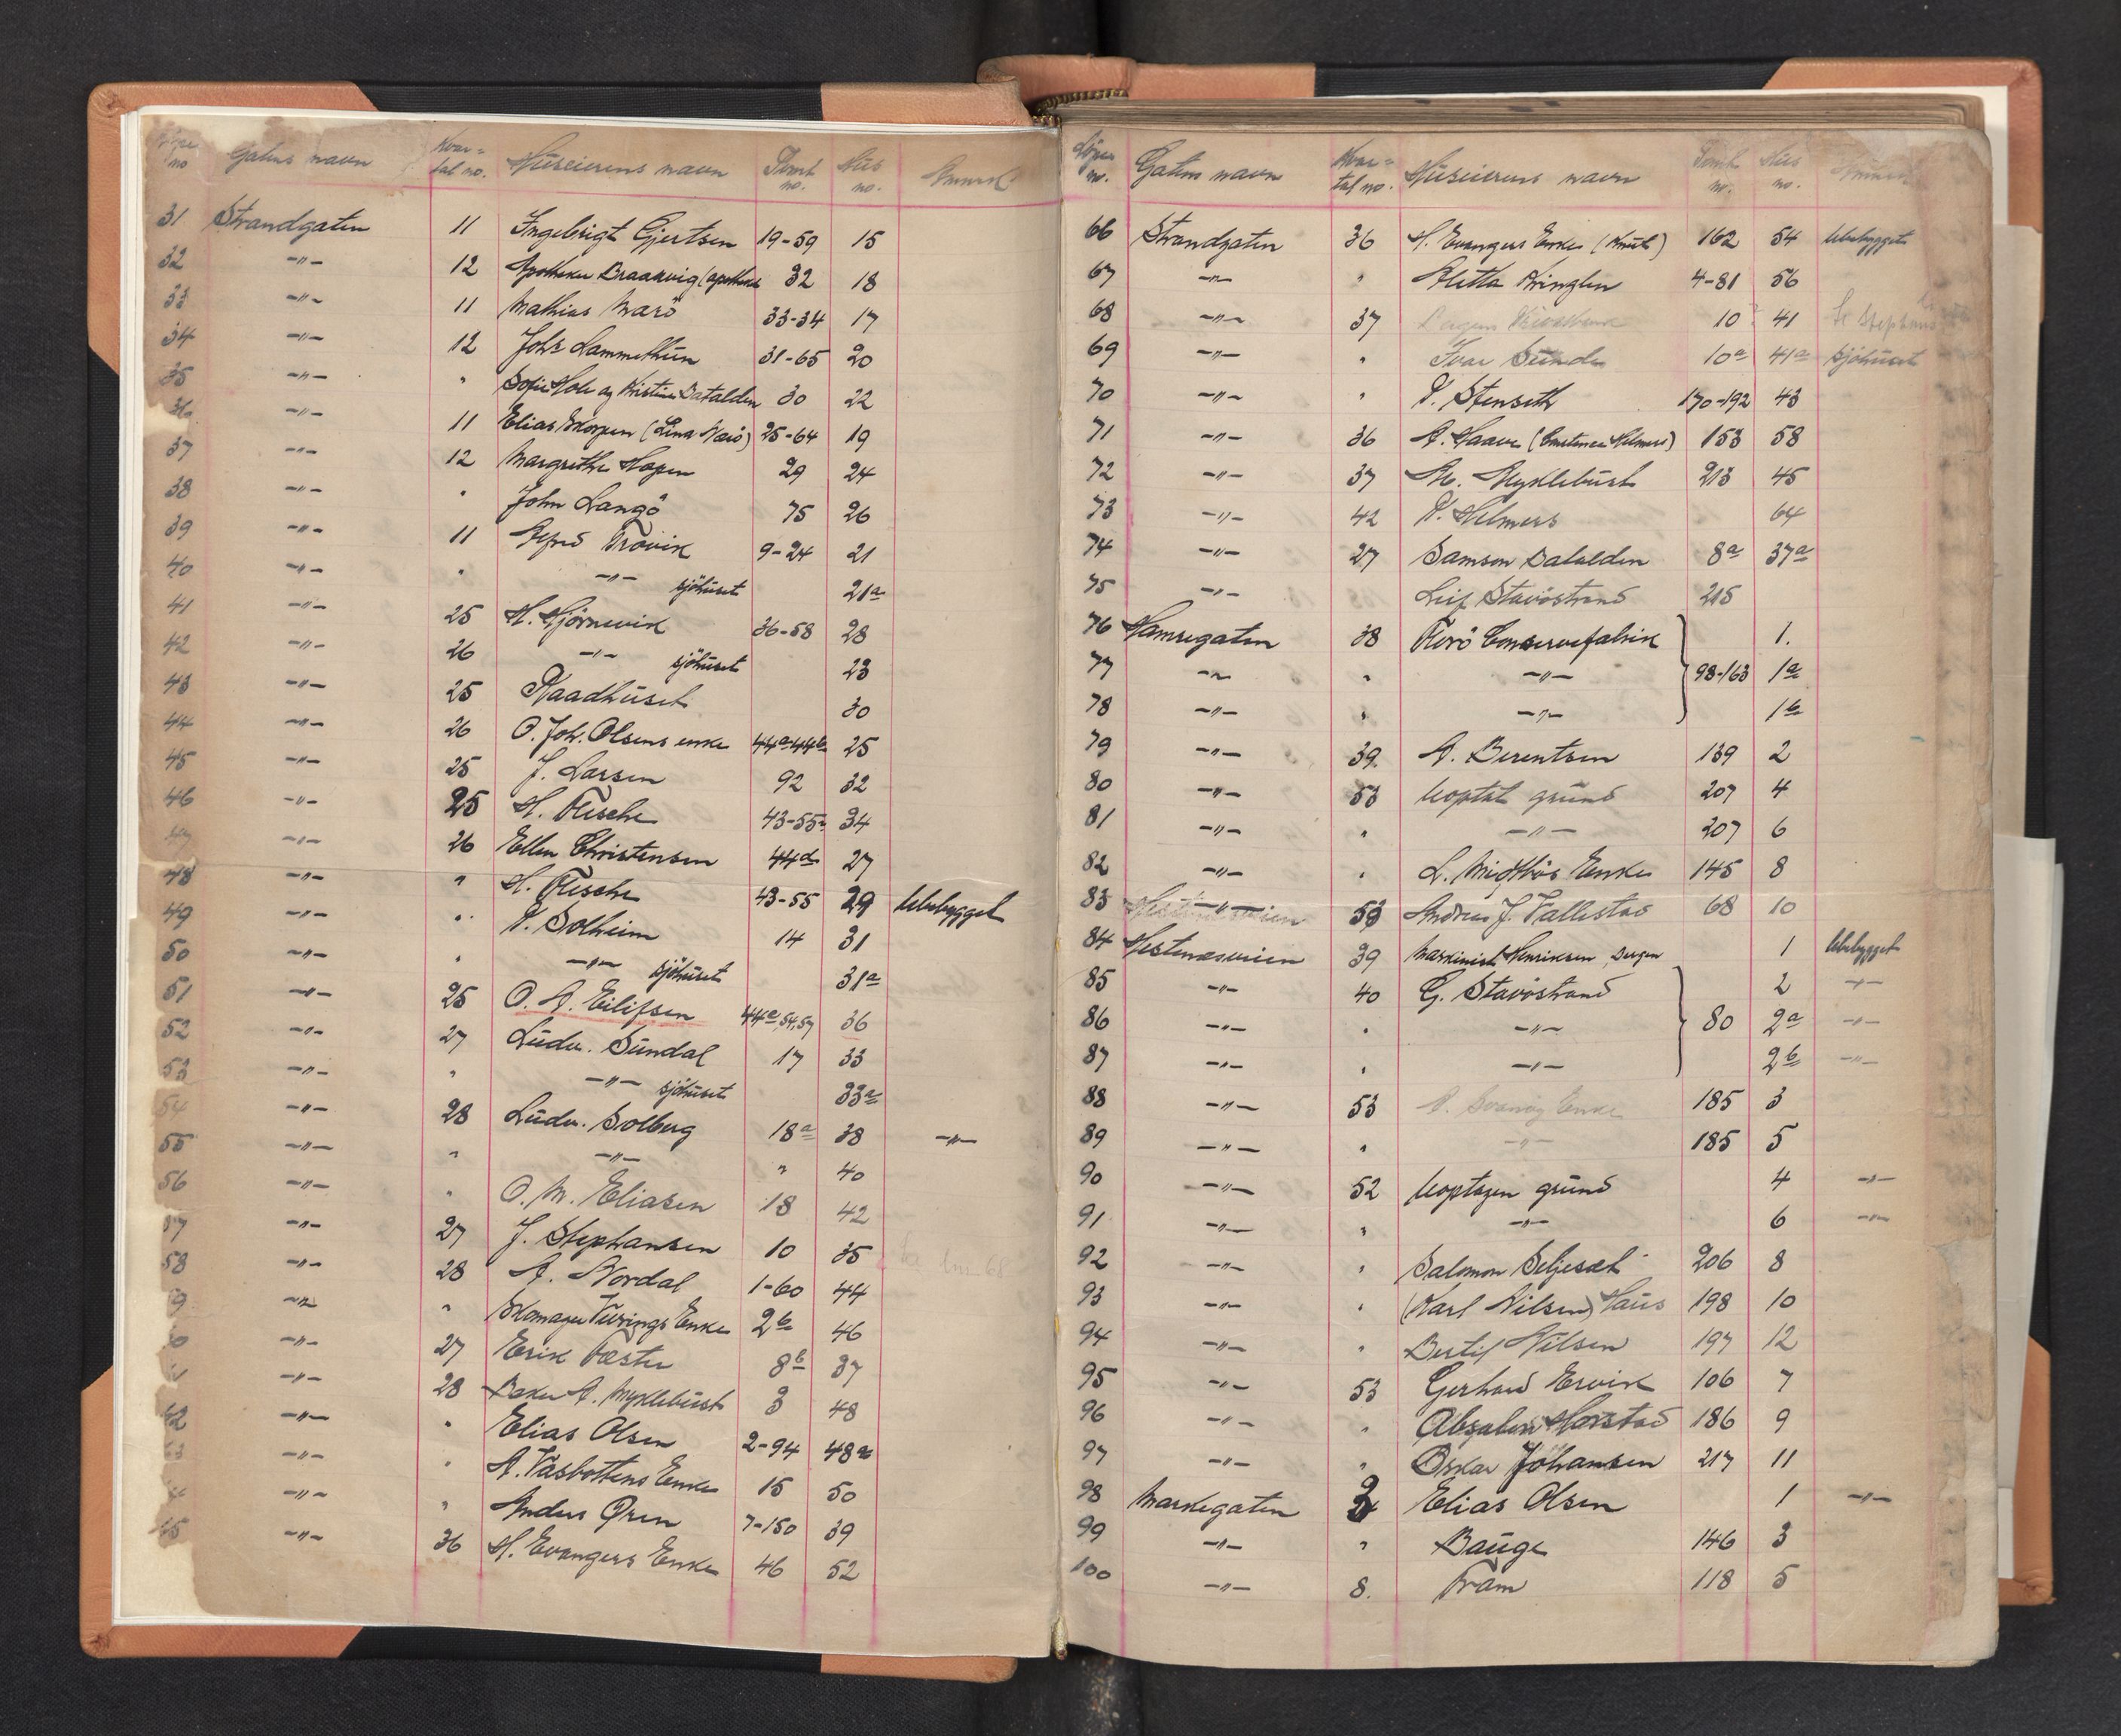 no Gatens navn Kvar= tal no. Huseierens navn Tomt no. Hus no. Anmerk.
31 Strandgaten 11 Ingebrigt Gjertsen 19-59 15
32 -"- 12 Apotheker Braarvig (apotheket 32 18
33 -"- 11 Mathias Marö 33-34 17
34 -"- 12 Johs Lammethun 31-65 20
35 -"- " Sofie Hole og Kristine Batalden 30 22
36 -"- 11 Elias Skorpen (Lina Narö) 25-64 19
37 -"- 12 Margrethe Hopen 29 24
38 -"- " John Langö 75 26
39 -"- 11 Trovik 9-24 21
40 -"- " -"- sjöhuset 21a
41 -"- 25 H. Hjörnevik 36-58 28
42 -"- 26 -"- sjöhuset 23
43 -"- 25 Raadhuset 30
44 -"- 26 O. Joh. Olsens enke 44a-44b 25
45 -"- 25 J. Larsen 92 32
46 -"- 25 H. Fische 43-55 34
47 -"- 26 Ellen Christensen 44d 27
48 -"- " H. Fische 43-55 29 Ubebygget
49 -"- " P. Solheim 14 31
50 -"- " -"- sjöhuset 31a
51 -"- 25 O. A. Eilifsen 44a, 54, 57 36
52 -"- 27 Ludv. Sundal 17 33
53 -"- " -"- sjöhuset 33a
54 -"- 28 Ludv. Solberg 18a 38 -"-
55 -"- " -"- " 40
56 -"- " O. M. Eliasen 18 42
57 -"- 27 J. Stephansen 10 35
58 -"- 28 A. Nordal 1-60 44
59 -"- " Skomager Enke 2b 46
60 -"- 27 Erik Fæster 8b 37
-"- 28 Baker A. Myklebust 3 48
62 -"- " Elias Olsen 2-94 48a
-"- " A. Vasbottens Enke 15 50
-"- " Anders Øren 7-150 39
65 -"- 36 H. Evangers Enke 46 52
Löpe no. Gatens navn Kvar= tal no. Huseierens navn Tomt no. Hus no.
66 Strandgaten 36 H. Evangers Enke (Knut) 162 54 Ubebygget
67 -"- " Kringlen 4-81 56
68 -"- 37 10 41
69 -"- " Ivar Sunde 10a 41a sjöhuset
70 -"- " P. Stenseth 170-192 43
71 -"- 36 A. Haave (Constance Helmers) 153 58
72 -"- 37 M. Myklebust 213 45
73 -"- 42 P. Helmers 64
74 -"- 27 Samson Batalden 8a 37a
75 -"- Leif Stavöstrand 215
76 Hamregaten 38 Florö Conservefabrik 1.
77 -"- " -"- 98-163 1a
78 -"- " -"- 1b
79 -"- 39. A. Berentsen 139 2
80 -"- 53 Uoptat grund 207 4
81 -"- " -"- 207 6
82 -"- " L. Midtbös Enke 145 8
83 -"- 53 Andreas J. Vallestad 68 10
84 Hestenesveien 39 Maskinist Henriksen, Bergen 1 Ubebygget
85 -"- 40 G. Stavöstrand 2 -"-
86 -"- " -"- 80 2a -"-
87 -"- " -"- 2b -"-
88 -"- 53 Enke 185 3
89 -"- " -"- 185 5
90 -"- 52 Uoptagen grund 4 -"-
91 -"- " -"- 6 -"-
92 -"- " Salomon Seljeset 206 8
93 -"- " (Karl Nilsen) Haus 198 10
94 -"- " Bertil Nilsen 197 12
95 -"- 53 Gerhard Ervik 106 7
96 -"- " Absalon Horstad 186 9
97 -"- " Oskar Johansen 217 11
98 Markegaten 3 Elias Olsen 1 -"-
99 -"- " Bauge 146 3
100 -"- 8. Fram 118 5